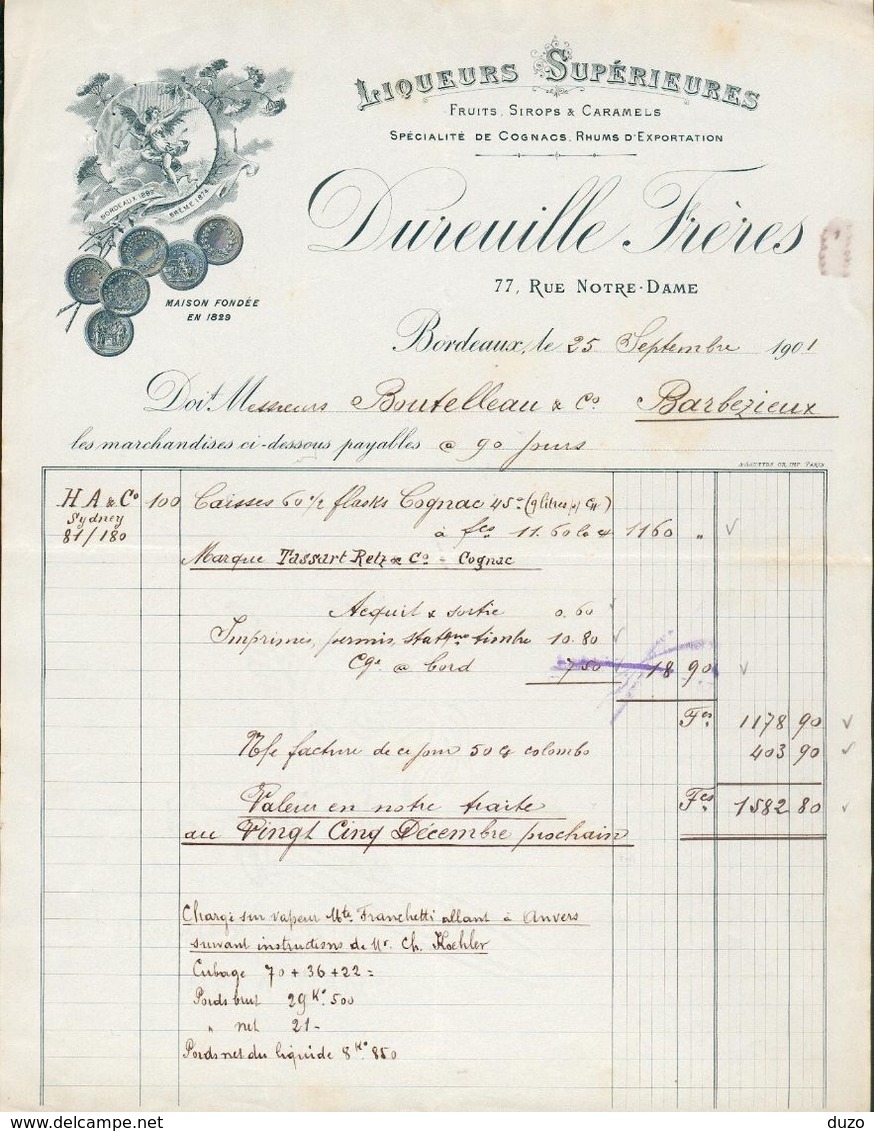 Liqueurs Supérieures
Fruits, Sirops & Caramels
Spécialité de Cognacs, Rhums d'Exportation
Dureuille Frères
77, Rue Notre-Dame
BORDEAUX
BRÊME 1874
MAISON FONDÉE
EN 1829
Bordeaux, le 25 Septembre 1901
Doit Messieurs Boutelleau & Co Barbezieux
les marchandises ci-dessous payables @ 90 jours
H A & Co 100 Caisses 60 1/2 flasks Cognac 45° (9 litres
Sydney
81/180 à fcs 11.60 la 1160 "
Marque Tassart Retz & Co - Cognac
Acquit & sortie 0.60
Imprimes, permis, statque timbre 10.80
Cge @ bord 7 50 18 90
Fcs 1178 90
N/e facture de ce jour 50 colombo 403 90
Valeur en notre traite Fcs 1582 80
au Vingt Cinq Décembre prochain
Chargé sur vapeur Mte Franchetti allant à Anvers
suivant instructions de Mr. Ch. Koehler
Cubage 70 + 36 + 22 =
Poids brut 29 Ko 500
" net 21 -
Poids net du liquide 8 Ko 850
delcampe.net
duzo